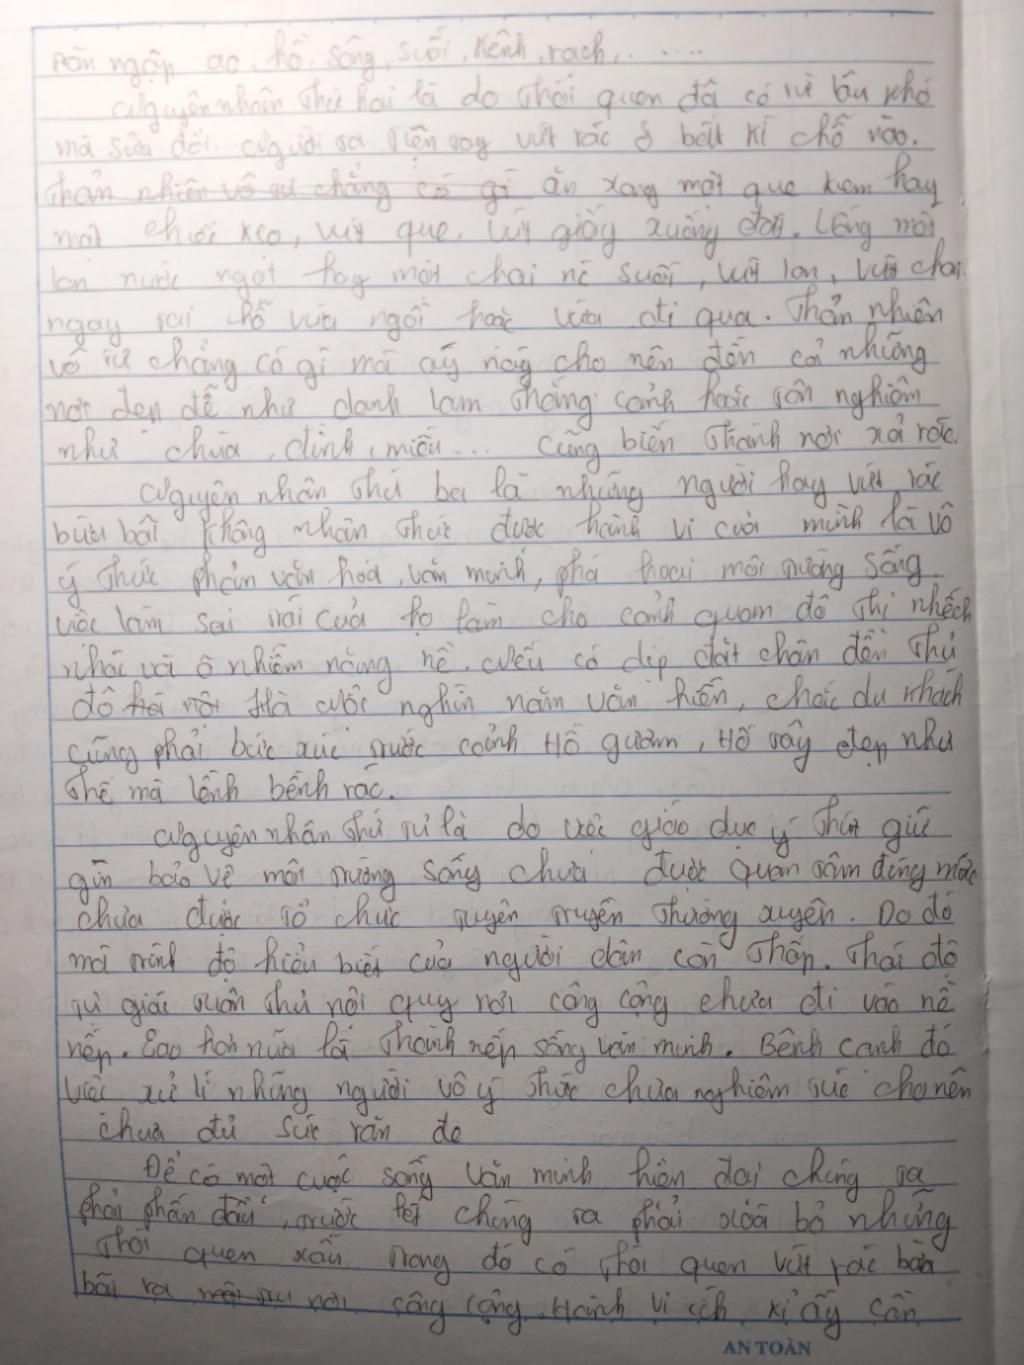 ngập ao, hồ, sông, suối, kênh, rạch, . ....
Nguyên nhân thứ hai là do thói quen đã có từ lâu khó
mà sửa đổi. Người ta tiện tay vứt rác ở bất kì chỗ nào.
Thản nhiên vô tư chẳng có gì ăn xong một que kem hay
một chiếc kẹo, vứt que, vứt giấy xuống đất. Uống một
lon nước ngọt hay một chai nc suối, vứt lon, vứt chai
ngay tại chỗ vừa ngồi hoặc vừa đi qua. Thản nhiên
vô tư chẳng có gì mà áy náy cho nên đến cả những
nơi đẹp đẽ như danh lam thắng cảnh hoặc tôn nghiêm
như chùa, đình, miếu... cũng biến thành nơi xả rác.
Nguyên nhân thứ ba là những người hay vứt rác
bừa bãi không nhận thức được hành vi của mình là vô
ý thức phản văn hóa, văn minh, phá hoại môi trường sống.
việc làm sai trái của họ làm cho cảnh quan đô thị nhếch
nhác và ô nhiễm nặng nề. Nếu có dịp đặt chân đến thủ
đô Hà Nội nghìn năm văn hiến, chắc du khách
cũng phải bức xúc trước cảnh Hồ gươm, Hồ tây đẹp như
thế mà lềnh bềnh rác.
Nguyên nhân thứ tư là do việc giáo dục ý thức giữ
gìn bảo vệ môi trường sống chưa được quan tâm đúng mức
chưa được tổ chức tuyên truyền thường xuyên. Do đó
mà trình độ hiểu biết của người dân còn thấp. Thái độ
tự giác tuân thủ nội quy nơi công cộng chưa đi vào nề
nếp. Cao hơn nữa là thành nếp sống văn minh. Bênh cạnh đó
việc xử lí những người vô ý thức chưa nghiêm túc cho nên
chưa đủ sức răn đe
Để có một cuộc sống văn minh hiện đại chúng ta
phải phấn đấu, trước hết chúng ta phải xóa bỏ những
thói quen xấu trong đó có thói quen vứt rác bừa
bãi ra nơi công cộng. Hành vi ích kỉ ấy cần
AN TOÀN